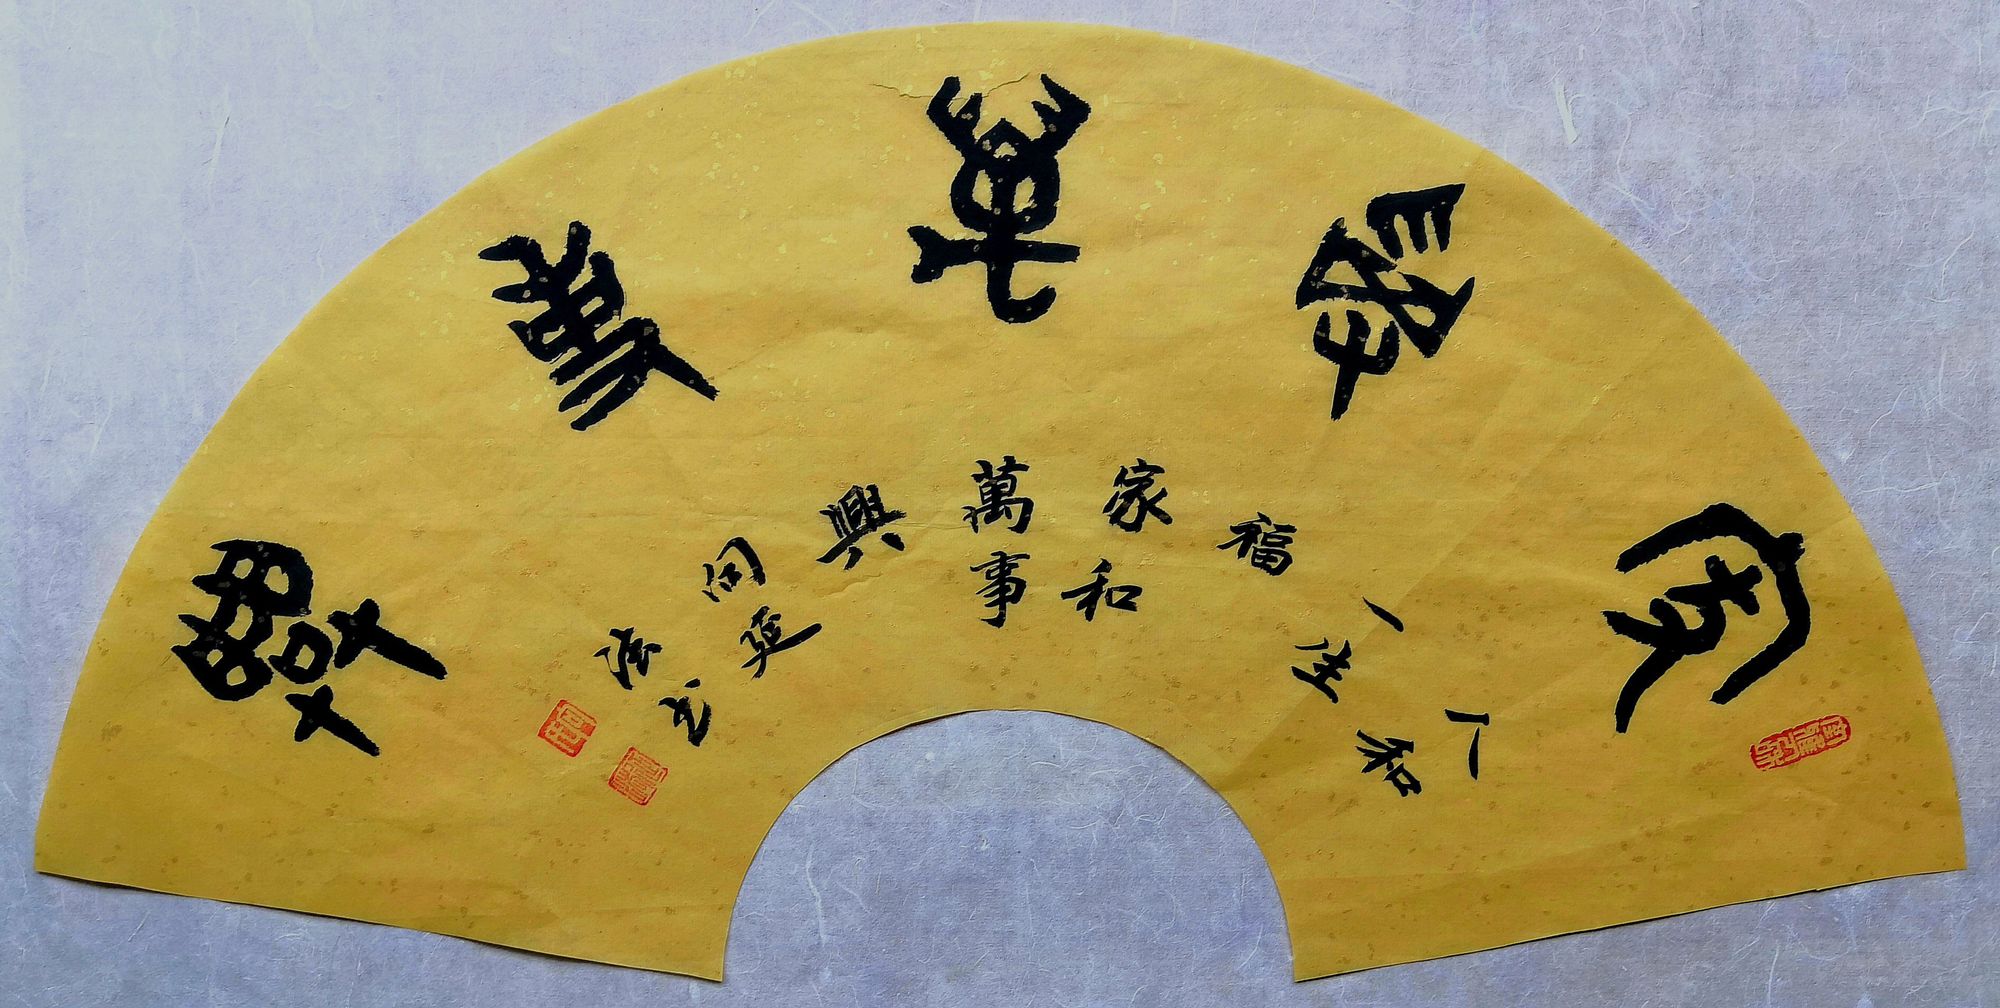 家和萬事興
人和
一生
福
家和
萬事
興